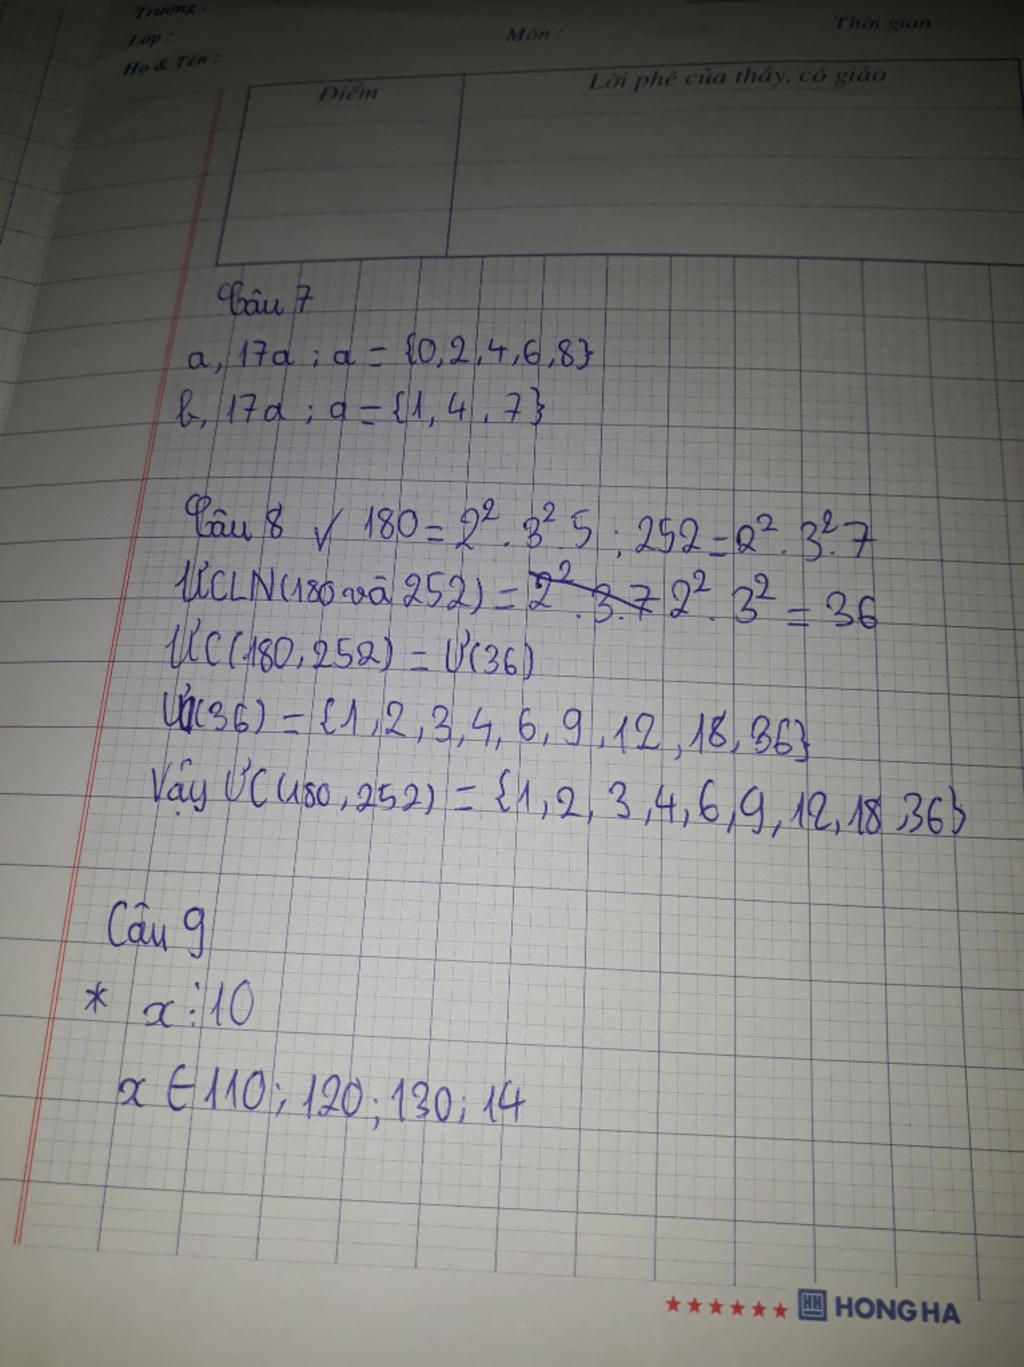 Trường :
Lớp :
Họ & Tên :
Môn :
Thời gian :
Điểm
Lời phê của thầy, cô giáo
Câu 7
a, 17a ; a = {0,2,4,6,8}
b, 17a ; a = {1,4,7}
Câu 8 √ 180 = 2². 3² 5 ; 252 = 2². 3². 7
ƯCLN(180 và 252) = 2². 3. 7 2². 3² = 36
ƯC(180,252) = Ư(36)
Ư(36) = {1,2,3,4,6,9,12,18,36}
Vậy ƯC(180,252) = {1,2,3,4,6,9,12,18,36}
Câu 9
* x ⋮ 10
x ∈ 110; 120; 130; 14
HONG HA